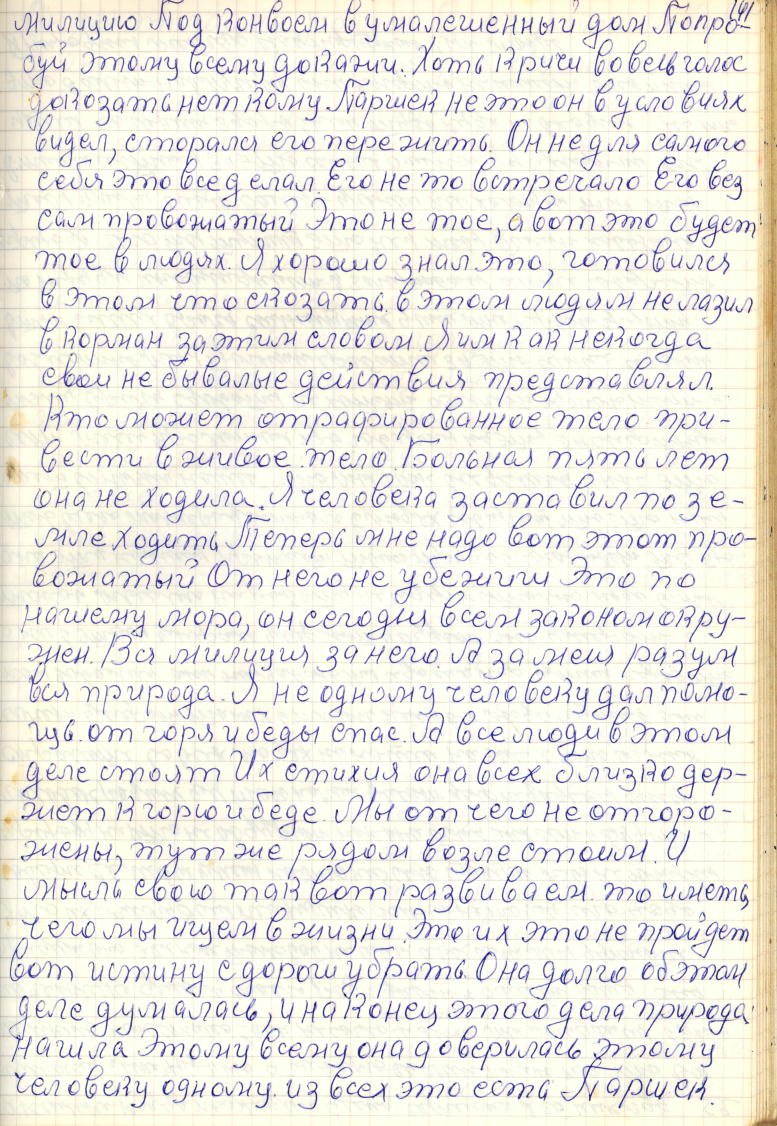 141
милицию Под конвоем в умалешенный дом Попро-
буй этому всему докажи. Хоть кричи во весь голос
докозать нет кому Паршек не это он в условиях
видел, сторался его пережить. Он не для самого
себя это все делал. Его не то встречало Его вез
сам провожатый Это не тое, а вот это будет
тое в людях. Я хорошо знал это, готовился
в этом что скозать. в этом людям не лазил
в корман за этим словом Я им как некогда
свои не бывалые действия представлял.
Кто может отрафированное тело при-
вести в живое тело. Больная пять лет
она не ходила. Я человека заставил по зе-
мле ходить Теперь мне надо вот этот про-
вожатый От него не убежиш Это по
нашему мора, он сегодня всем законом окру-
жен. Вся милиция за него. А за меня разум
вся природа. Я не одному человеку дал помо-
щь. от горя и беды спас. А все люди в этом
деле стоят Их стихия она всех близко дер-
жет к горю и беде. Мы от чего не отгоро-
жены, тут же рядом возле стоим. И
мысль свою так вот развиваем. то иметь,
чего мы ищем в жизни. Это их это не пройдет
вот истину с дороги убрать. Она долго об этом
деле думалась, и на конец этого дела природа
нашла Этому всему она доверилась этому
человеку одному. из всех это есть Паршек.